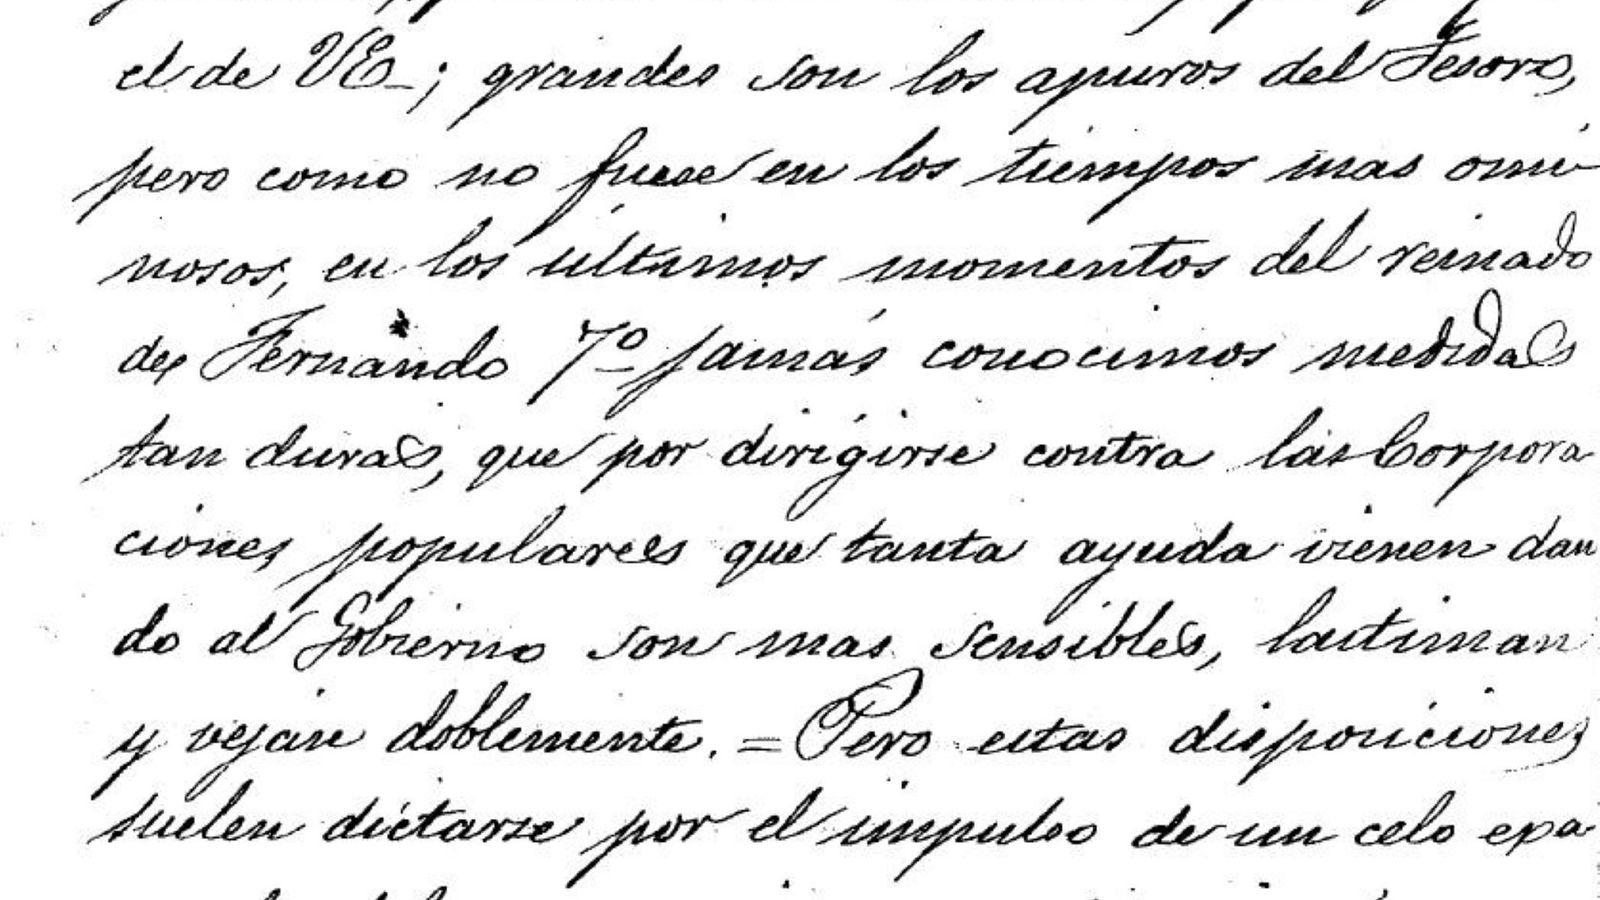 el de VE_; grandes son los apuros del Tesoro,
pero como no fuese en los tiempos mas omi-
nosos, en los últimos momentos del reinado
de Fernando 7º jamás conocimos medidas
tan duras, que por dirigirse contra las Corpora-
ciones populares que tanta ayuda vienen dan
do al Gobierno son mas sensibles, lastiman
y vejan doblemente. = Pero estas disposiciones
suelen dictarse por el impulso de un celo exa-